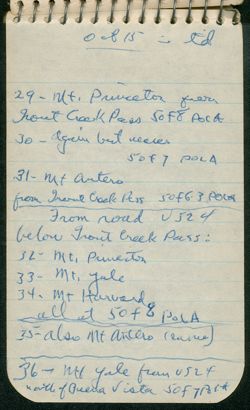 Oct 15 - td
29 - Mt. Princeton from
Trout Creek Pass 50 f 8 Pola
30 - Again but nearer
50 f 7 Pola
31 - Mt Antero
from Trout Creek Pass 50 f 6.3 Pola
From road US 24
below Trout Creek Pass:
32 - Mt. Princeton
33 - Mt. Yale
34 - Mt Harvard
all at 50 f 8 Pola
35 - also Mt Antero (same)
36 - Mt Yale from US 24
north of Buena Vista 50 f 7 Pola